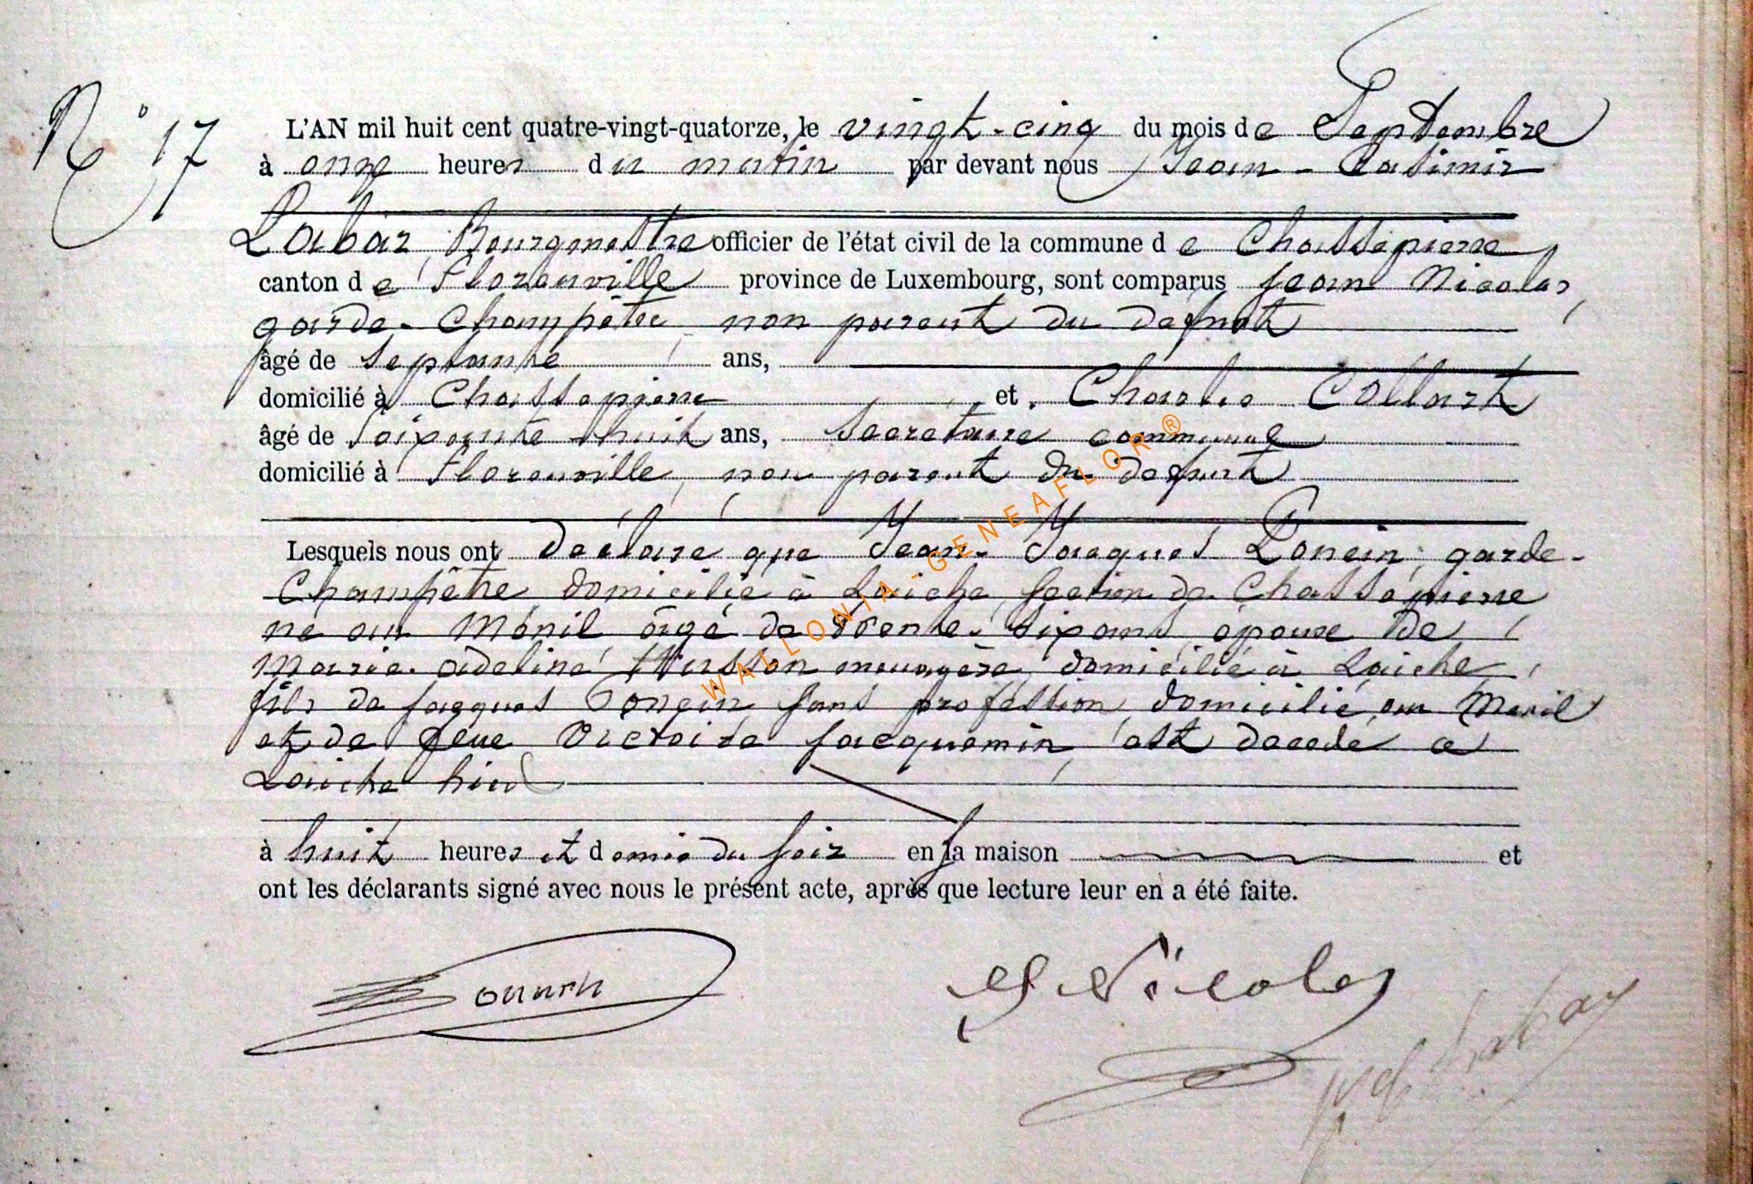 N° 17
L'AN mil huit cent quatre-vingt-quatorze, le vingt-cinq du mois de Septembre
à onze heures du matin par devant nous Jean-Casimir
Labar, Bourgmestre officier de l'état civil de la commune de Chassepierre
canton de Florenville province de Luxembourg, sont comparus Jean Nicolas,
garde-champêtre, non parent du defunt
âgé de septante ans,
domicilié à Chassepierre et Charles Collart
âgé de soixante huit ans, Secretaire communal
domicilié à Florenville, non parent du defunt
Lesquels nous ont déclaré que Jean-Jacques Poncin, garde-
Champêtre, domicilié à Laiche, section de Chassepierre
né au Ménil âgé de trente-six ans, époux de
Marie-Adeline Husson menagère domicilié à Laiche,
fils de Jacques Poncin, sans profession, domicilié au Menil
et de feue Victoire Jacquemin, est décédé à
Laiche hier
à huit heures et demie du soir en sa maison et
ont les déclarants signé avec nous le présent acte, après que lecture leur en a été faite.
J Nicolas
WALLONIA-GENEAFLOR ®